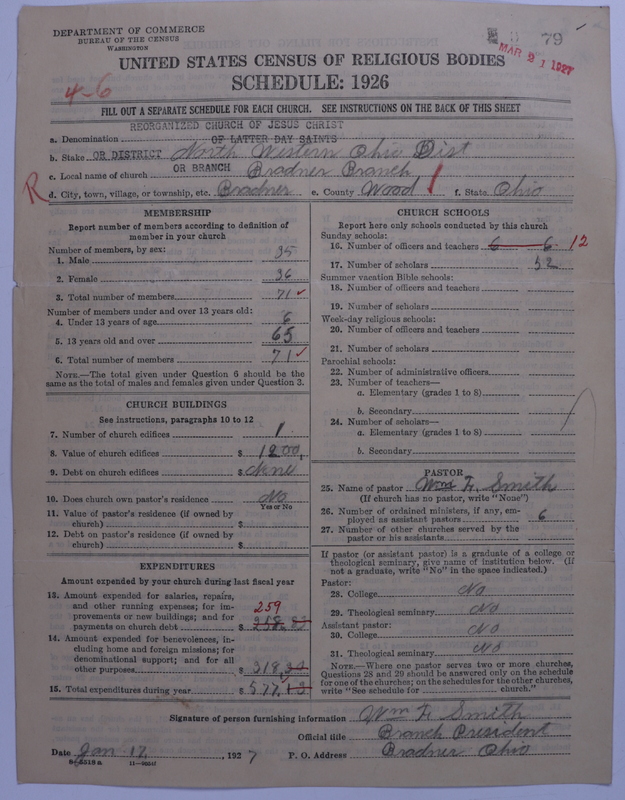 DEPARTMENT OF COMMERCE
BUREAU OF THE CENSUS
WASHINGTON
79
MAR 21 1927
UNITED STATES CENSUS OF RELIGIOUS BODIES
4-6
SCHEDULE: 1926
FILL OUT A SEPARATE SCHEDULE FOR EACH CHURCH. SEE INSTRUCTIONS ON THE BACK OF THIS SHEET
REORGANIZED CHURCH OF JESUS CHRIST
a. Denomination OF LATTER DAY SAINTS
b. Stake OR DISTRICT North Western Ohio Dist
c. Local name of church OR BRANCH Bradner Branch
R d. City, town, village, or township, etc. Bradner e. County Wood f. State Ohio
MEMBERSHIP
Report number of members according to definition of
member in your church
Number of members, by sex:
1. Male 35
2. Female 36
3. Total number of members 71
Number of members under and over 13 years old:
4. Under 13 years of age 6
5. 13 years old and over 65
6. Total number of members 71
NOTE.—The total given under Question 6 should be the
same as the total of males and females given under Question 3.
CHURCH BUILDINGS
See instructions, paragraphs 10 to 12
7. Number of church edifices 1
8. Value of church edifices $ 1200
9. Debt on church edifices $ None
10. Does church own pastor's residence No
Yes or No
11. Value of pastor's residence (if owned by
church) $
12. Debt on pastor's residence (if owned by
church) $
EXPENDITURES
Amount expended by your church during last fiscal year
13. Amount expended for salaries, repairs,
and other running expenses; for im- 259
provements or new buildings; and for
payments on church debt $ 258.
14. Amount expended for benevolences, in-
cluding home and foreign missions; for
denominational support; and for all
other purposes $ 318.
15. Total expenditures during year $ 577.13
CHURCH SCHOOLS
Report here only schools conducted by this church
Sunday schools:
16. Number of officers and teachers 6 6 12
17. Number of scholars 52
Summer vacation Bible schools:
18. Number of officers and teachers
19. Number of scholars
Week-day religious schools:
20. Number of officers and teachers
21. Number of scholars
Parochial schools:
22. Number of administrative officers
23. Number of teachers—
a. Elementary (grades 1 to 8)
b. Secondary
24. Number of scholars—
a. Elementary (grades 1 to 8)
b. Secondary
PASTOR
25. Name of pastor Wm F. Smith
(If church has no pastor, write "None")
26. Number of ordained ministers, if any, em-
ployed as assistant pastors 6
27. Number of other churches served by the
pastor or his assistants
If pastor (or assistant pastor) is a graduate of a college or
theological seminary, give name of institution below. (If
not a graduate, write "No" in the space indicated.)
Pastor:
28. College No
29. Theological seminary No
Assistant pastor:
30. College No
31. Theological seminary No
NOTE.—Where one pastor serves two or more churches,
Questions 28 and 29 should be answered only on the schedule
for one of the churches; on the schedules for the other churches,
write "See schedule for church."
Signature of person furnishing information Wm F. Smith
Official title Branch President
Date Jan 12, 1927 P. O. Address Bradner Ohio